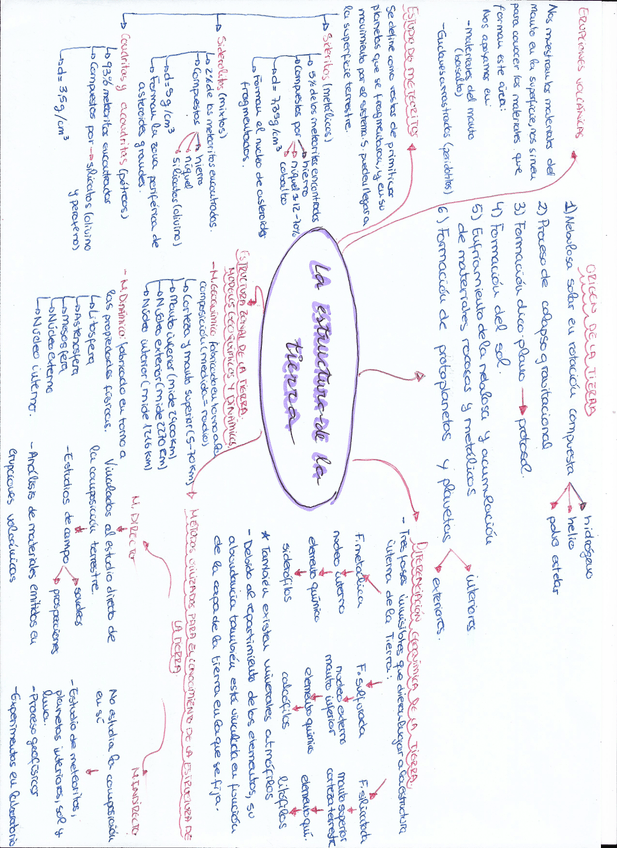 LA estructura de la
tierra
ORIGEN DE LA TIERRA
1) Nebulosa solar en rotación compuesta
hidrógeno
helio
polvo estelar
2) Proceso de colapso gravitacional
3) Formación disco plano → protosol.
4) Formación del sol.
5) Enfriamiento de la nebulosa y acumulación
de materiales rocosos y metálicos
6) Formación de protoplanetas y planetas
interiores
exteriores.
DIFERENCIACIÓN GEOQUÍMICA DE LA TIERRA
- Tres fases inmiscibles que dieron lugar a la estructura
interna de la Tierra:
F. metálica
núcleo interno
elemento químico
siderófilos
F. sulfurada
núcleo externo
manto inferior
elemento químico
calcófilos
F. silicatada
manto superior
corteza terrestre
elemento quí.
litófilos
* También existen minerales atmófilos
- Debido al repartimiento de los elementos, su
abundancia también está vinculada en función
de la capa de la tierra en la que se fija.
MÉTODOS UTILIZADOS PARA EL CONOCIMIENTO DE LA ESTRUCTURA DE
LA TIERRA
M. DIRECTO
Vinculados al estudio directo de
la composición terrestre.
- Estudios de campo
sondeos
prospecciones
- Análisis de materiales emitidos en
erupciones volcánicas
M. INDIRECTO
No estudia la composición
en sí
- Estudio de meteoritos,
planetas interiores, sol y
luna.
- Proceso geofísicos
- Experimentos en laboratorio
ESTRUCTURA ZONAL DE LA TIERRA.
MODELOS GEOQUÍMICOS Y DINÁMICOS
- M. Geoquímico: fabricado en torno a la
composición
Corteza y manto superior (5-70 km)
Manto inferior (mide 2900 km)
Núcleo exterior (mide 2270 km)
Núcleo interior (mide 1216 km)
- M. Dinámico: fabricado en torno a
las propiedades físicas.
Litosfera
Astenosfera
Mesosfera
Núcleo externo
Núcleo interno.
ERUPCIONES VOLCÁNICAS
Nos muestran los materiales del
manto en la superficie, nos sirven
para conocer los materiales que
forman este área:
Nos apoyamos en:
- materiales del manto
(basalto)
- Enclaves arrastrados (peridotitas)
ESTUDIO DE METEORITOS
Se define como restos de primitivos
planetas que se fragmentaron y en su
movimiento por el sistema S. pueden llegar a
la superficie terrestre.
Sideritos (metálicos)
5% de los meteoritos encontrados
Compuestos por
hierro
níquel
cobalto
d = 7,85 g/cm³
Forman el núcleo de asteroides
fragmentados.
Siderolitos (mixtos)
2% de los meteoritos encontrados.
Compuestos
hierro
níquel
silicatos (olivino)
d = 5 g/cm³
Forman la zona periférica de
asteroides grandes.
Condritas y acondritas (pétreos)
93% meteoritos encontrados
Compuestos por → silicatos (olivino
y piroxeno)
d = 3,5 g/cm³